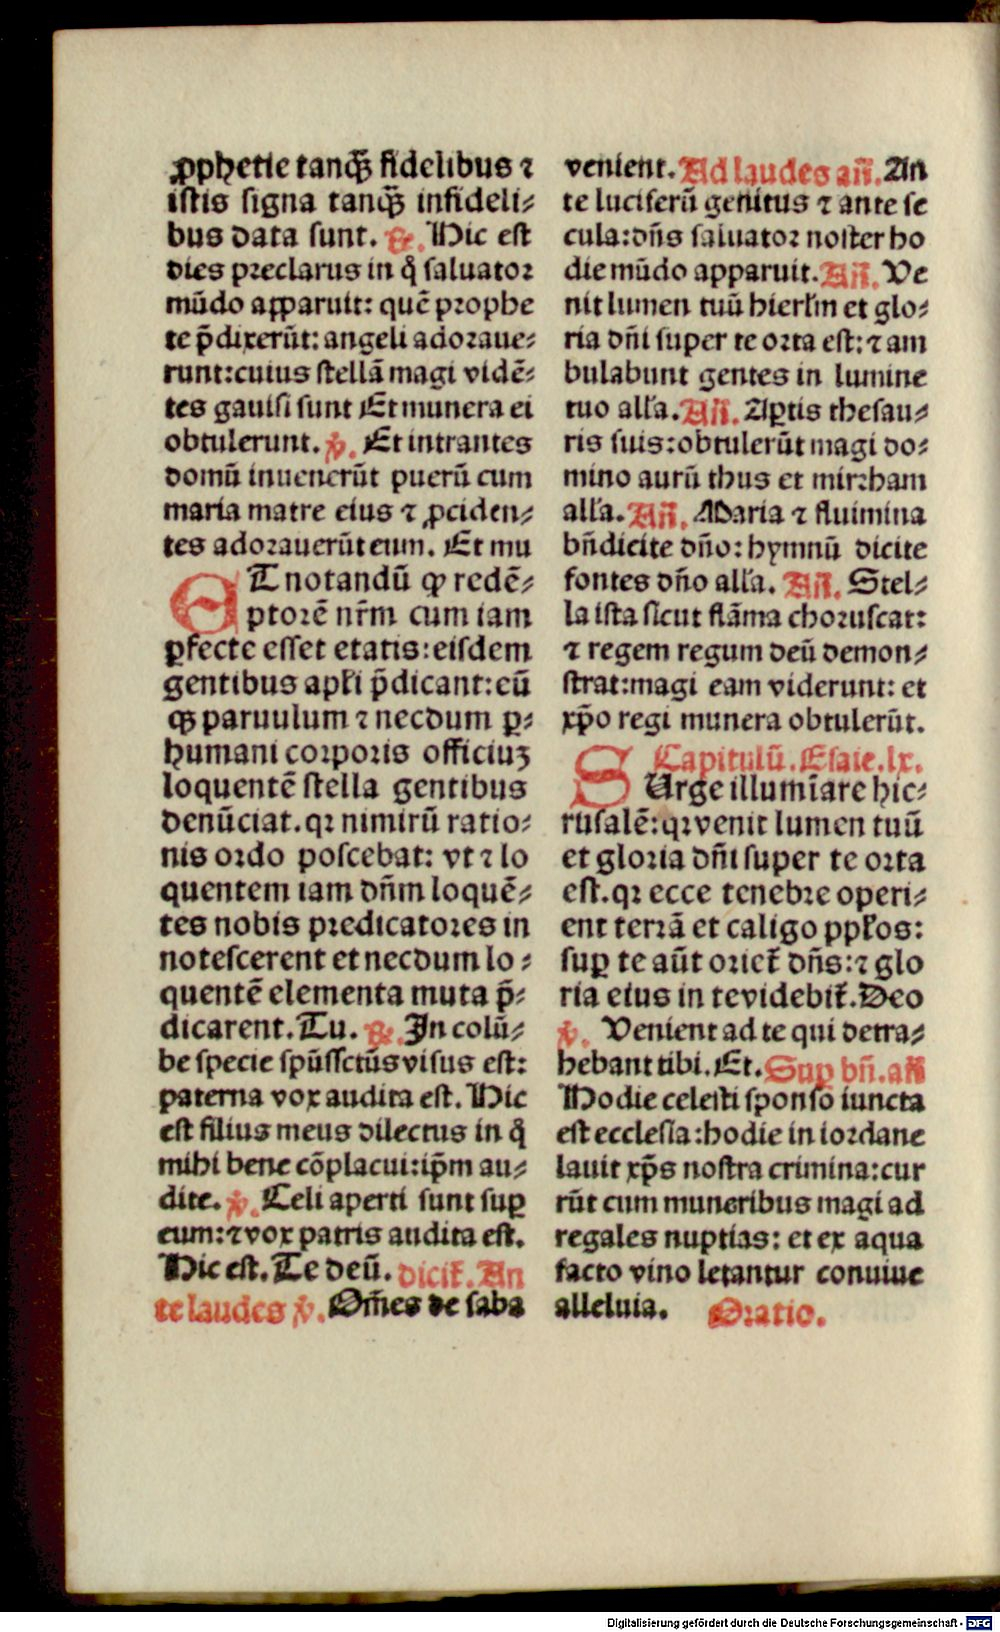 ꝓphetie tanqȝ fidelibus ⁊
istis signa tanqȝ infideli⸗
bus data sunt. ℟. Hic est
dies preclarus in q̊ saluator
mūdo apparuit: quē prophe
te p̄dixerūt: angeli adoraue⸗
runt: cuius stellā magi vidē⸗
tes gauisi sunt Et munera ei
obtulerunt. ℣. Et intrantes
domū inuenerūt puerū cum
maria matre eius ⁊ ꝓciden⸗
tes adorauerūt eum. Et mu
ET notandū ꝙ redē⸗
ptorē nr̄m cum iam
ꝑfecte esset etatis: eisdem
gentibus apł'i p̄dicant: eū
qȝ paruulum ⁊ necdum ꝑ⸗
humani corporis officiuʒ
loquentē stella gentibus
denūciat. qꝛ nimirū ratio⸗
nis ordo poscebat: vt ⁊ lo
quentem iam dn̄m loquē⸗
tes nobis predicatores in
notescerent et necdum lo⸗
quentē elementa muta p̄⸗
dicarent. Tu. ℟. In colū⸗
be specie spūssctūs visus est:
paterna vox audita est. Hic
est filius meus dilectus in q̊
mihi bene cōplacui: ip̄m au⸗
dite. ℣. Celi aperti sunt suꝑ
eum: ⁊ vox patris audita est.
Hic est. Te deū. dicit̄. An
te laudes ℣. Om̄es de saba
venient. Ad laudes an̄. An
te luciferū genitus ⁊ ante se
cula: dn̄s saluator noster ho
die mūdo apparuit. An̄. Ve
nit lumen tuū hierł'm et glo⸗
ria dn̄i super te orta est: ⁊ am
bulabunt gentes in lumine
tuo all'a. An̄. Aꝑtis thesau⸗
ris suis: obtulerūt magi do⸗
mino aurū thus et mirrham
all'a. An̄. Maria ⁊ fluimina
bn̄dicite dn̄o: hymnū dicite
fontes dn̄o all'a. An̄. Stel⸗
la ista sicut flāma choruscat:
⁊ regem regum deū demon⸗
strat: magi eam viderunt: et
xp̄o regi munera obtulerūt.
Capitulū. Esaie. lx.
SUrge illumīare hie⸗
rusalē: qꝛ venit lumen tuū
et gloria dn̄i super te orta
est. qꝛ ecce tenebre operi⸗
ent terrā et caligo ppł'os:
suꝑ te aūt oriet̄ dn̄s: ⁊ glo
ria eius in te videbit̄. Deo
℣. Venient ad te qui detra⸗
hebant tibi. Et. Suꝑ bn̄. an̄
Hodie celesti sponso iuncta
est ecclesia: hodie in iordane
lauit xp̄s nostra crimina: cur
rūt cum muneribus magi ad
regales nuptias: et ex aqua
facto vino letantur conuiue
alleluia. Oratio.
Digitalisierung gefördert durch die Deutsche Forschungsgemeinschaft - DFG